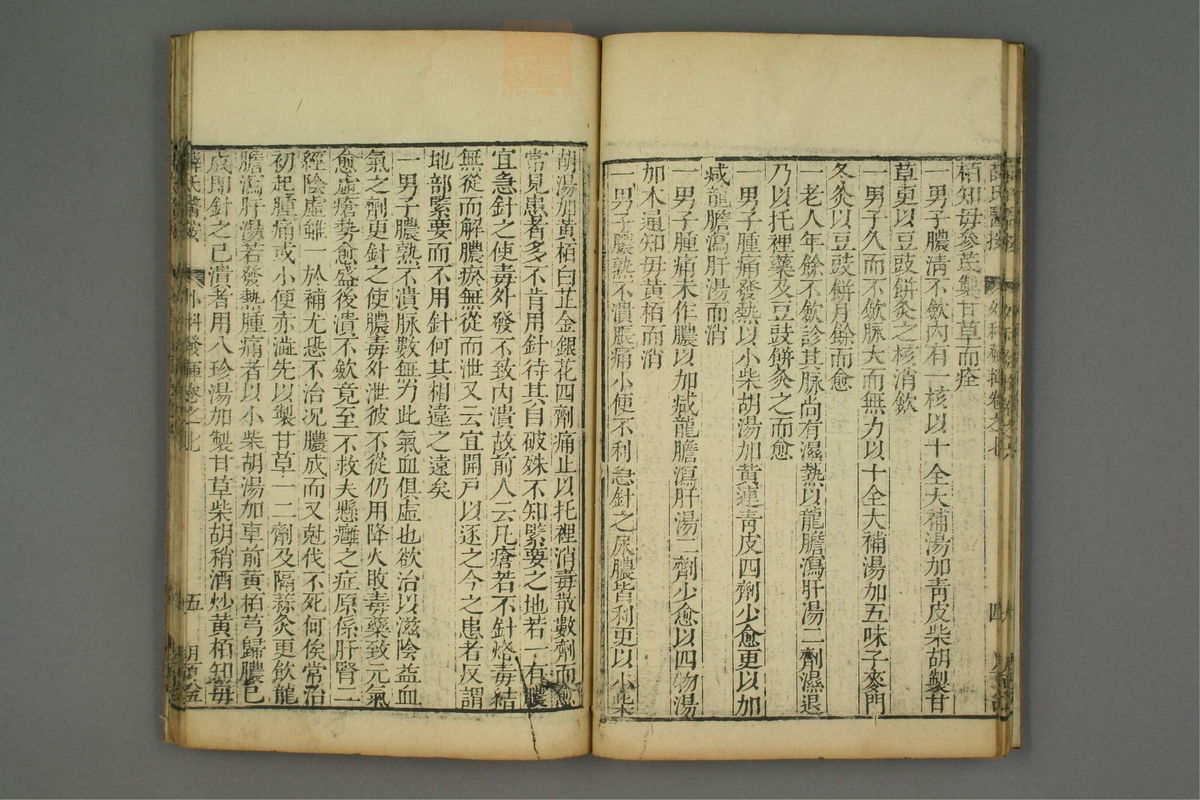 栢知毋參芪製甘草而痊
一男子膿清不斂內有一核以十全大補湯加靑皮柴胡製甘
草更以豆豉餅灸之核消斂
一男子久而不斂脉大而無力以十全大補湯加五味子麥門
冬灸以豆豉餅月餘而愈
一老人年餘不斂診其脉尚有濕熱以龍膽瀉肝湯二劑濕退
乃以托裡藥及豆豉餅灸之而愈
一男子腫痛發熱以小柴胡湯加黃連靑皮四劑少愈更以加
減龍膽瀉肝湯而消
一男子腫痛未作膿以加減龍膽瀉肝湯二劑少愈以四物湯
加木通知毋黃栢而消
一男子膿熟不潰脹痛小便不利急針之尿膿皆利更以小柴
胡湯加黃栢白芷金銀花四劑痛止以托裡消毒散數劑而愈
常見患者多不肯用針待其自破殊不知緊要之地若一有膿
宜急針之使毒外發不致內潰故前人云凡瘡若不針烙毒結
無從而解膿瘀無從而泄又云宜開戶以逐之今之患者反謂
地部緊要而不用針何其相違之遠矣
一男子膿熟不潰脉數無力此氣血俱虛也欲治以滋陰益血
氣之劑更針之使膿毒外泄彼不從仍用降火敗毒藥致元氣
愈虛瘡勢愈盛後潰不斂竟至不救夫懸癰之症原係肝腎二
經陰虛雖一於補尤恐不治况膿成而又尅伐不死何俟常治
初起腫痛或小便赤澁先以製甘草一二劑及隔蒜灸更飲龍
膽瀉肝湯若發熱腫痛者以小柴胡湯加車前黃栢芎歸膿已
成卽針之已潰者用八珍湯加製甘草柴胡稍酒炒黃栢知毋
外科發揮卷之七
五